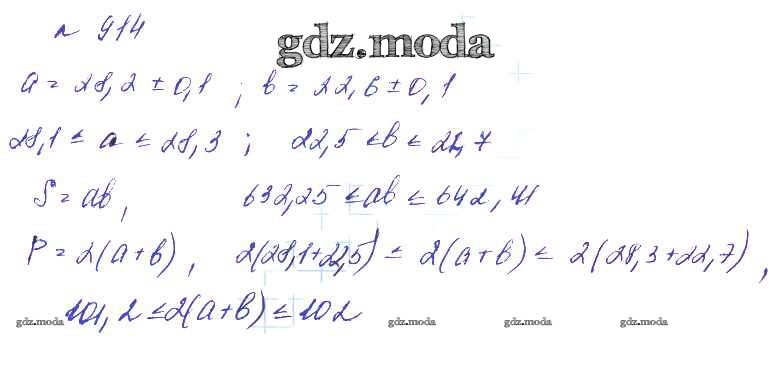 № 914
gdz.moda
a = 28,2 ± 0,1 ; b = 22,6 ± 0,1
28,1 ≤ a ≤ 28,3 ; 22,5 ≤ b ≤ 22,7
S = ab, 632,25 ≤ ab ≤ 642,41
P = 2(a+b), 2(28,1+22,5) ≤ 2(a+b) ≤ 2(28,3+22,7),
101,2 ≤ 2(a+b) ≤ 102
gdz.moda gdz.moda gdz.moda gdz.moda